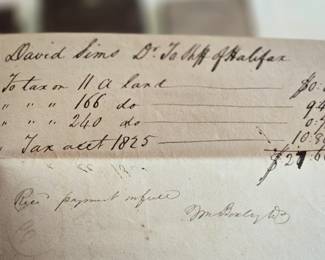 David Sims Dr. To Shff of Halifax
To tax on 11 a land $0.
" " " 166 do 94
" " " 240 do 0.
" Tax acct 1825 10.8
$27.6
Recd payment in full
Wm Bailey